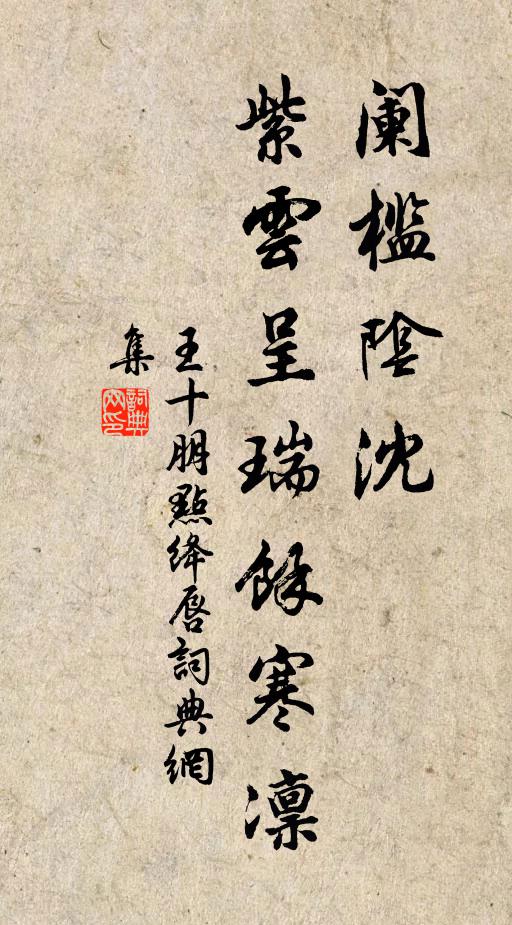 阑檻陰沈
紫雲呈瑞餘寒凜
王十朋點绛唇詞典網
集
詞典
网印